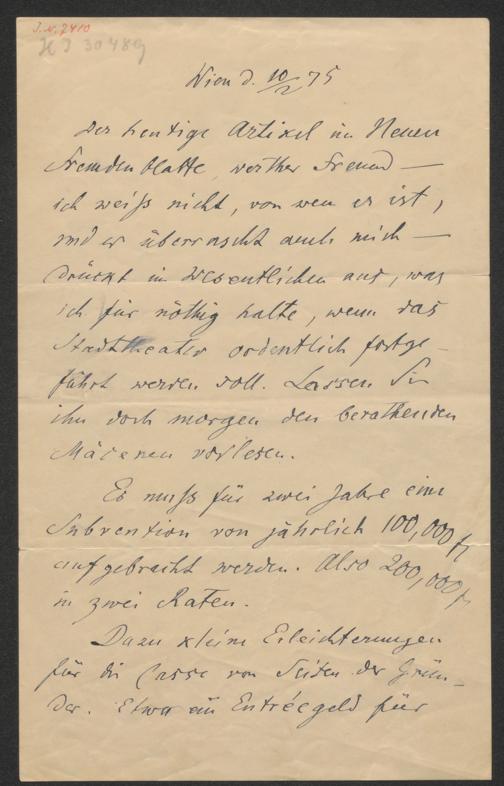 J.N. 7410
H J 30489
Wien d. 10/2 75
Der heutige Artikel im Neuen
Fremdenblatte, werther Freund —
ich weiß nicht, von wem er ist,
und er überrascht auch mich —
drückt im Wesentlichen aus, was
ich für nöthig halte, wenn das
Stadttheater ordentlich fortge-
führt werden soll. Lassen Sie
ihn doch morgen den berathenden
Mäcenen vorlesen.
Es muß für zwei Jahre eine
Subvention von jährlich 100,000 fl
aufgebracht werden. Also 200,000 fl
in zwei Raten.
Dazu kleine Erleichterungen
für die Casse von Seiten der Grün-
der. Etwa ein Entréegeld für